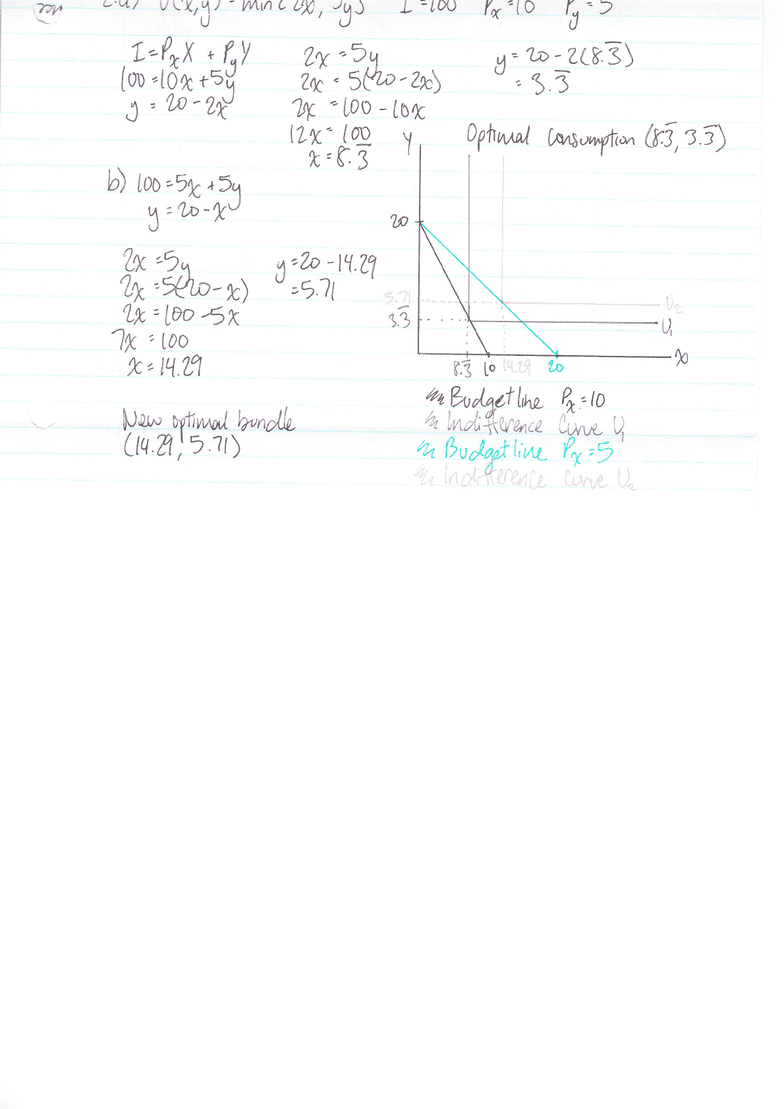 2.a) U(x,y) = min{2x, 5y} I=100 Px=10 Py=5
I=PxX + PyY
100=10x+5y
y = 20-2x
2x = 5y
2x = 5(20-2x)
2x = 100-10x
12x = 100
x = 8.3̅
y = 20-2(8.3̅)
= 3.3̅
Optimal Consumption (8.3̅, 3.3̅)
b) 100=5x+5y
y = 20-x
2x = 5y
2x = 5(20-x)
2x = 100-5x
7x = 100
x = 14.29
y = 20-14.29
= 5.71
New optimal bundle
(14.29, 5.71)
Y
20
5.71
3.3̅
U2
U1
8.3̅ 10 14.29 20 X
Budget line Px=10
Indifference Curve U1
Budget line Px=5
Indifference Curve U2